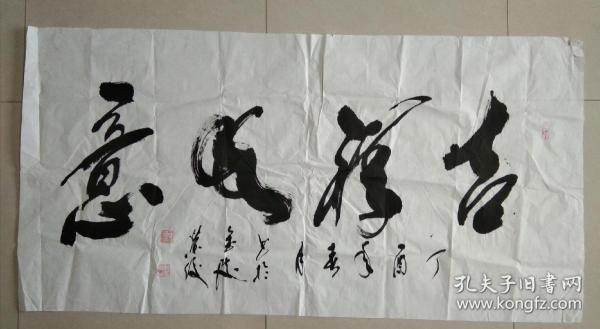 吉祥如意
丁酉年春月
书於
金陵
孔夫子旧书网
www.kongfz.com